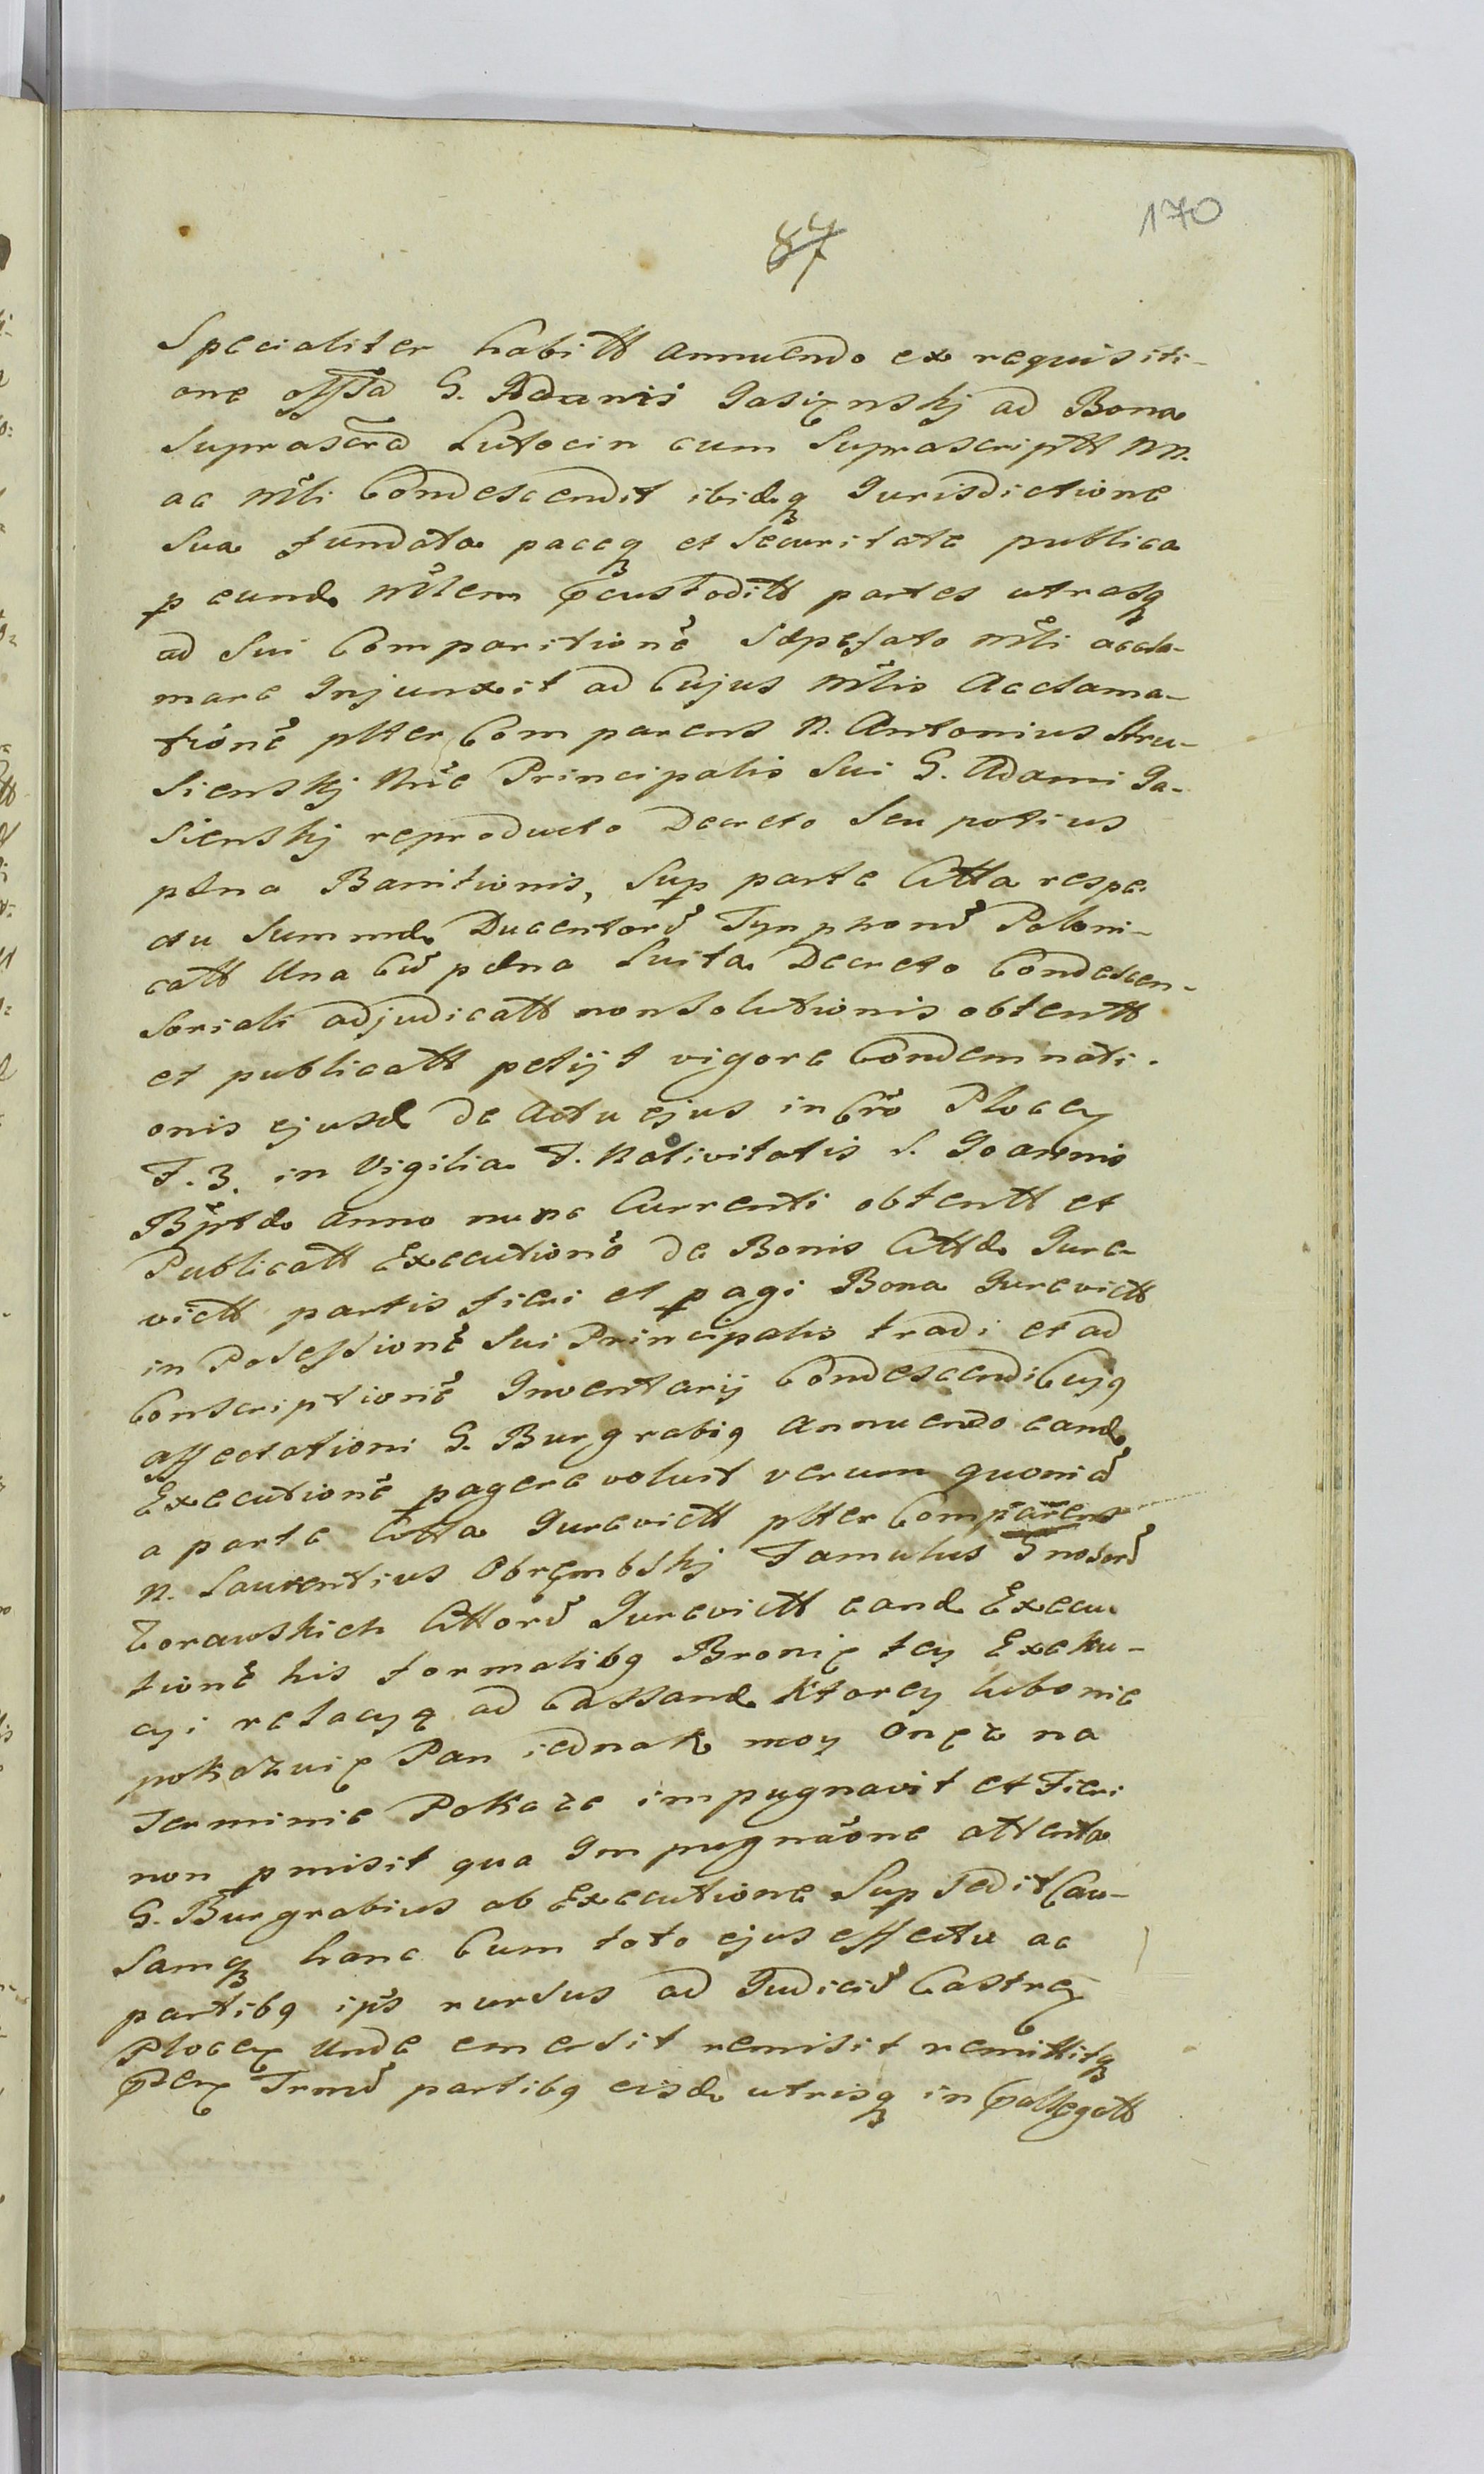 170
87
Specialiter habitt annuendo ex requisiti-
one offsa G. Adami Jasięnskj ad Bona
suprascra Lutocin cum suprascriptt NN.
ac Mlti Condescendit ibidq Jurisdictione
sua fundata paceq et securitate publica
p eund Mltem custoditt partes utrasq
ad sui Comparitione saepefato Mlti accla-
mare Injunxit ad Cujus Mltis Acclama-
tione plter Comparens N. Antonius Stru-
sienskj Nne Principalis sui G. Adami Ja-
sienskj reproducto Decreto seu potius
paena Banitionis, sup parte Citta respe-
ctu summae Ducentoru Tynphonu Poloni-
catt Una Cu paena luita Decreto Condescen-
soriali adjudicatt non solutionis obtentt
et publicatt petijt vigore Condemnati-
onis ejusd de Actu ejus in Cro Plocen
F. 3. in Vigilia F. Nativitatis S. Joannis
Bptae anno nunc Currenti obtentt et
Publicatt Executione de Bonis Cittae Jure-
victt partis fieri et pagi Bona Jurevictt
in Possessione sui Principalis tradi et ad
Conscriptione Inventarij Condescendi Cujq
affectationi G. Burgrabiq annuendo eand
Executione pagere voluit verum quonia
a parte Citta Jurevictt plter Comparens
N. Laurentius Obręmbskj Famulus Gnosoru
Zorawskich Cittoru Jurevictt eand Execu
tione his formalibq Bronię tey Exeku-
cyi relacyą ad Cassand Ktorey lubo nie
pokazuię Pan iednak moy Onęz na
Terminie Pokaze impugnavit et Fieri
non pmisit qua Impugnaone attenta
G. Burgrabius ab Executione supsedit Cau-
samq hanc Cum toto ejus effectu ac
partibq ips rursus ad Judiciu Castren
Plocen Unde emersit remisit remittitq
Trmu partibq eisd utrisq in